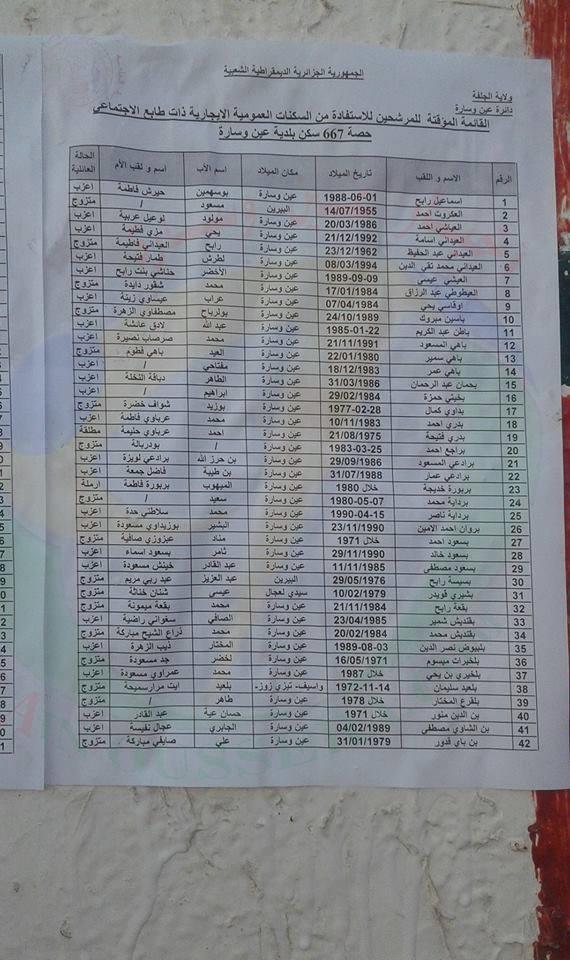 الجمهورية الجزائرية الديمقراطية الشعبية
ولاية الجلفة
دائرة عين وسارة
القائمة المؤقتة للمرشحين للاستفادة من السكنات العمومية الايجارية ذات طابع الاجتماعي
حصة 667 سكن بلدية عين وسارة
الرقم الاسم و اللقب تاريخ الميلاد مكان الميلاد اسم الأب اسم و لقب الأم الحالة العائلية
1 اسماعيل رابح 1988-06-01 عين وسارة بوسهمين حيرش فاطمة أعزب
2 العكروت احمد 14/07/1955 البيرين مسعود / متزوج
3 العياشي احمد 20/03/1986 عين وسارة مولود لوعيل عربية أعزب
4 العيداني اسامة 21/12/1992 عين وسارة يحي مزي فطيمة أعزب
5 العيداني عبد الحفيظ 23/12/1962 عين وسارة رابح العيداني فاطيمة متزوج
6 العيداني محمد تقي الدين 08/03/1994 عين وسارة لطرش طمار فتيحة أعزب
7 العيشي عيسى 1989-09-09 عين وسارة الأخضر حناشي بنت رابح أعزب
8 العيطوطي عبد الرزاق 17/01/1984 عين وسارة محمد شقور دايدة متزوج
9 اوقاسي يحي 07/04/1984 عين وسارة عراب عيساوي زينة أعزب
10 ياسين مبروك 24/10/1989 عين وسارة بولرباح مصطفاوي الزهرة متزوج
11 باطن عبد الكريم 1985-01-22 عين وسارة عبد الله لادق عائشة أعزب
12 باهي المسعود 21/11/1991 عين وسارة محمد صرصاب نصيرة أعزب
13 باهي سمير 22/01/1980 عين وسارة العيد باهي فطوم متزوج
14 باهي عمر 18/12/1983 عين وسارة مفتاحي / أعزب
15 بحمان عبد الرحمان 31/03/1986 عين وسارة الطاهر دباقة النخلة أعزب
16 بختي حمزة 29/02/1984 عين وسارة ابراهيم / أعزب
17 بداوي كمال 1977-02-28 عين وسارة بوزيد شواف خضرة متزوج
18 بدري احمد 10/11/1983 عين وسارة محمد عرباوي فاطمة أعزب
19 بدري فتيحة 21/08/1975 عين وسارة احمد عرباوي حليمة مطلقة
20 براجع احمد 1983-03-25 عين وسارة / بودربالة متزوج
21 برادعي المسعود 29/09/1986 عين وسارة بن حرز الله برادعي لويزة أعزب
22 برادعي عمار 31/07/1988 عين وسارة بن طيبة فاضل جمعة أعزب
23 بربورة خديجة خلال 1980 عين وسارة الميهوب بربورة فاطمة ارملة
24 بردابة محمد 1980-05-07 عين وسارة سعيد / متزوج
25 بردابة ناصر 1990-04-15 عين وسارة محمد سلاطني حدة أعزب
26 بروان احمد الامين 23/11/1990 عين وسارة البشير بوزيداوي مسعودة أعزب
27 بسعود احمد خلال 1971 عين وسارة مناد عبزوزي صافية متزوج
28 بسعود خالد 29/11/1990 عين وسارة ثامر بسعود اسماء أعزب
29 بسعود مصطفى 11/11/1985 عين وسارة عبد القادر خينش مسعودة أعزب
30 بسيسة رابح 29/05/1976 البيرين عبد العزيز عبد ربي مريم متزوج
31 بشيري قويدر 10/02/1979 سيدي لعجال عيسى شتان خناثة متزوج
32 بقعة رابح 21/11/1984 عين وسارة محمد بقعة ميمونة متزوج
33 بقنديش شمير 23/04/1985 عين وسارة الصافي سغواني راضية أعزب
34 بقنديش محمد 20/02/1984 عين وسارة محمد ذراع الشيح مباركة أعزب
35 بلبيوض نصر الدين 1989-08-03 عين وسارة المختار ذيب الزهرة أعزب
36 بلخيرات ميسوم 16/05/1971 عين وسارة لخضر جد مسعودة متزوج
37 بلخيري بن يحي خلال 1987 عين وسارة محمد عمراوي مسعودة أعزب
38 بلعيد سليمان 1972-11-14 واسيف- تيزي زوز- بلعيد ايت مرارسميحة متزوج
39 بلقرع المختار خلال 1978 عين وسارة طاهر / متزوج
40 بن الدين منور خلال 1971 عين وسارة حسان عية عبد القادر أعزب
41 بن الشاوي مصطفى 04/02/1989 عين وسارة الجابري عجال نفيسة أعزب
42 بن باي قدور 31/01/1979 عين وسارة علي صايفي مباركة متزوج